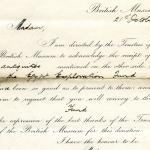 British Museum
21st October
Madam,
I am directed by the Trustees of
British Museum to acknowledge the receipt of
antiquities mentioned in the other side
the Egypt Exploration Fund
been so good as to present to them; and
to request that you will convey to the
Fund
the expression of the best thanks of the Trustees
of the British Museum for this donation.
I have the honour to be